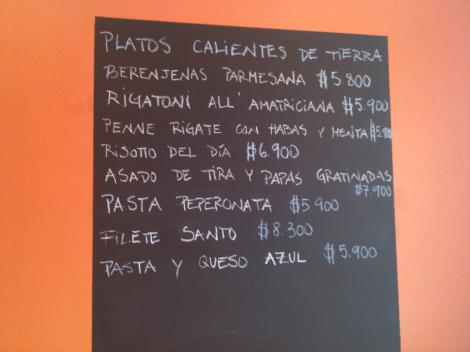 PLATOS CALIENTES DE TIERRA
BERENJENAS PARMESANA $5.800
RIGATONI ALL' AMATRICIANA $5.900
PENNE RIGATE CON HABAS Y MENTA $5.900
RISOTTO DEL DÍA $6.900
ASADO DE TIRA Y PAPAS GRATINADAS
$7.900
PASTA PEPERONATA $5.900
FILETE SANTO $8.300
PASTA Y QUESO AZUL $5.900